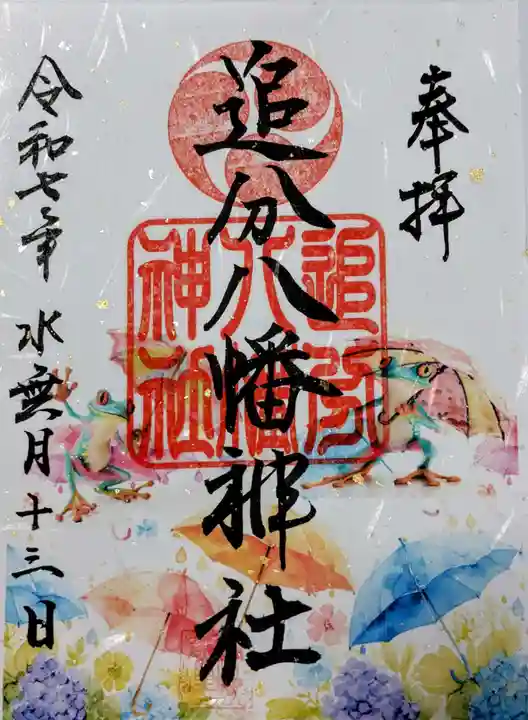 奉拝
追分八幡神社
追分八幡神社
令和七年 水無月十三日